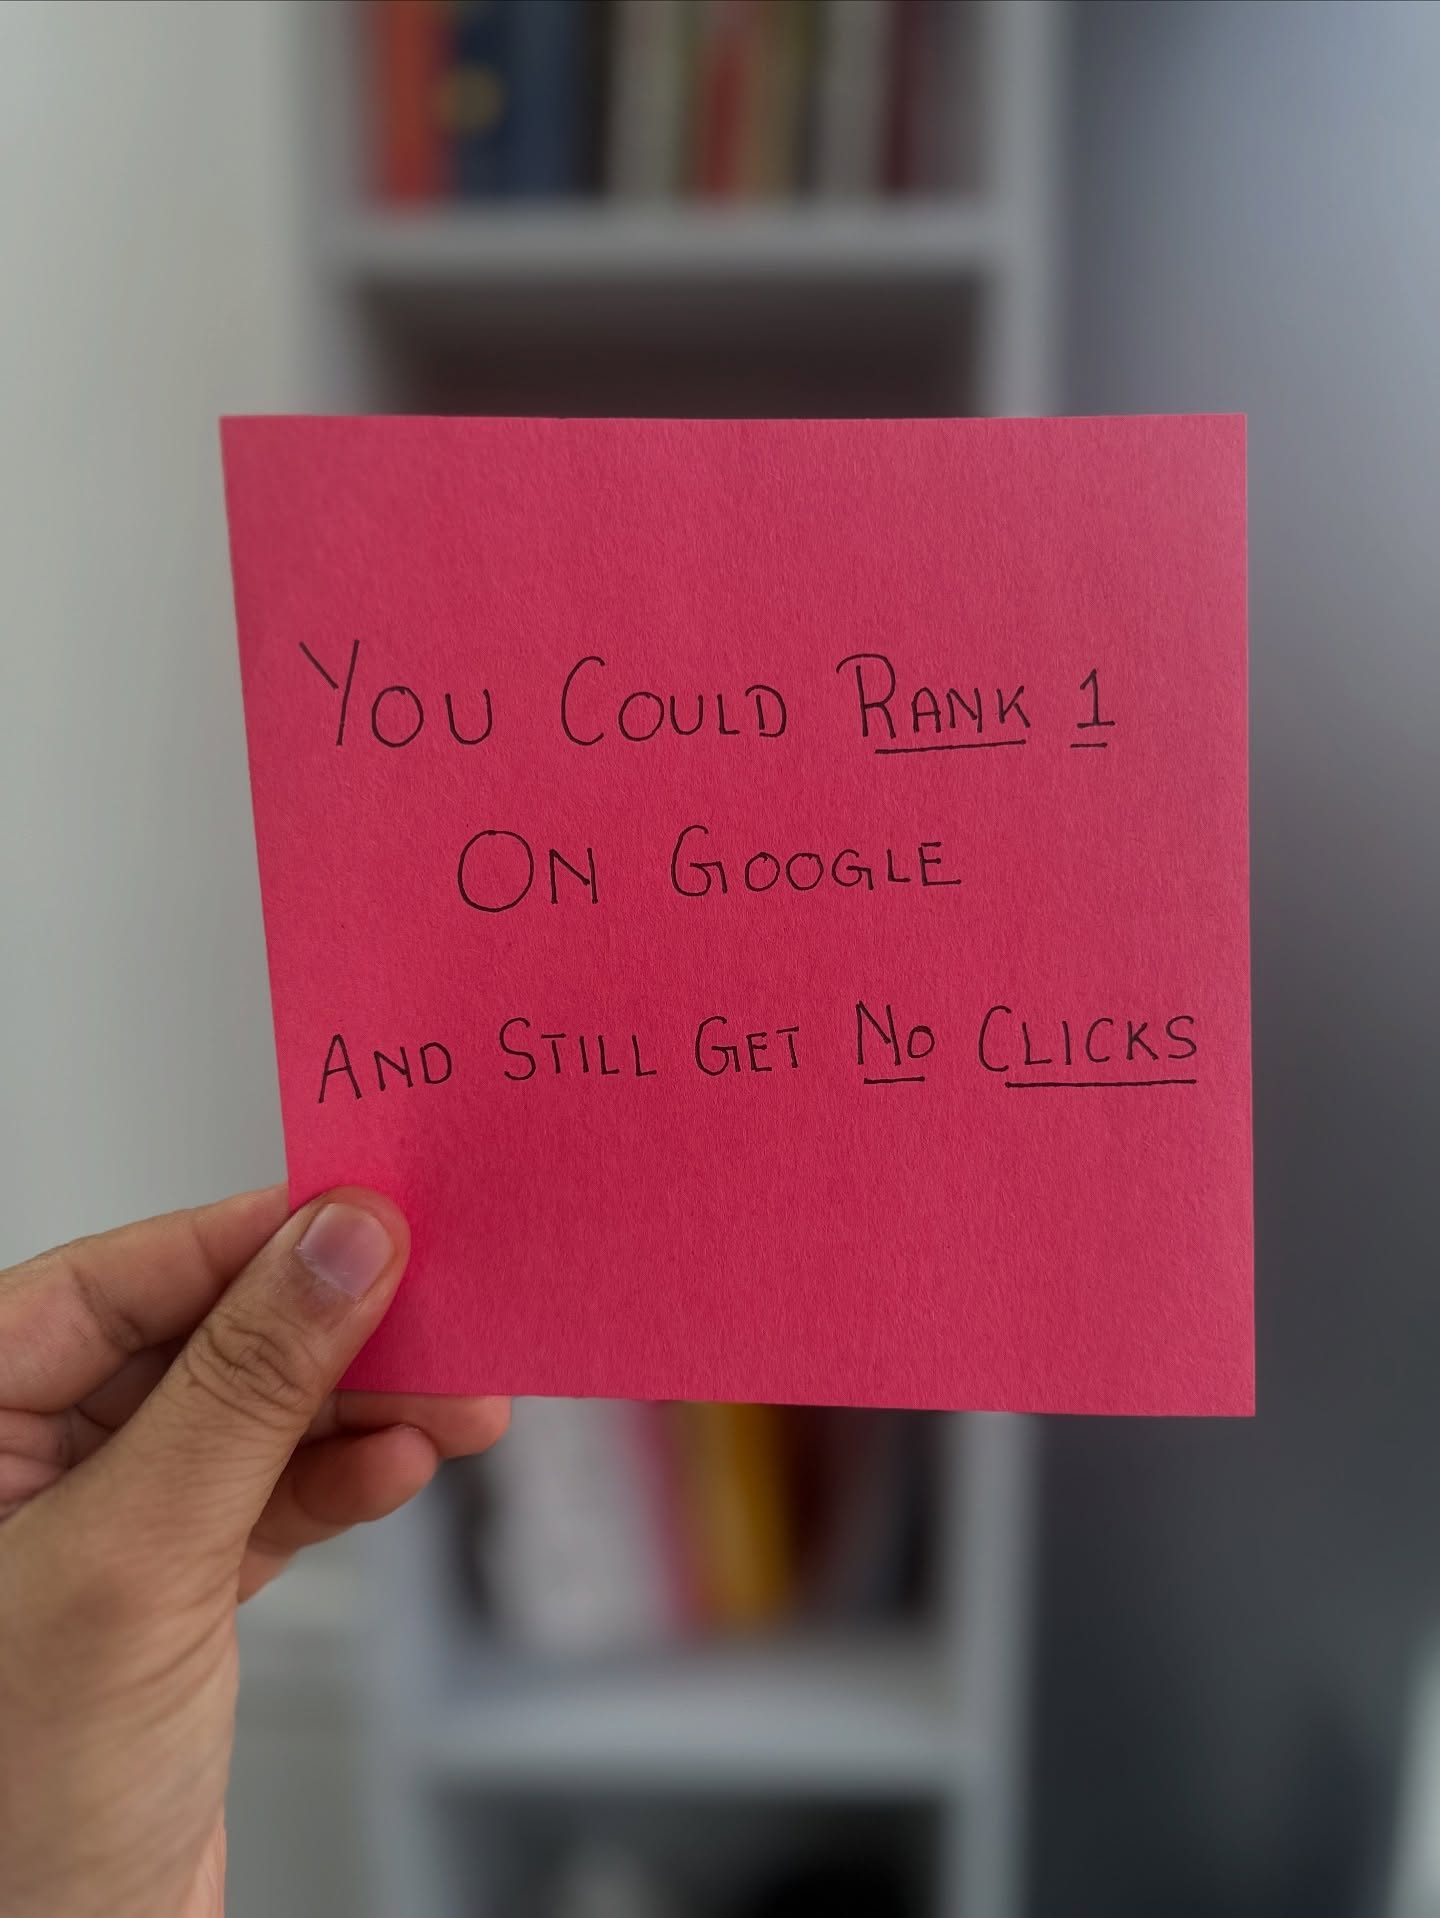 You Could Rank 1
On Google
And Still Get No Clicks